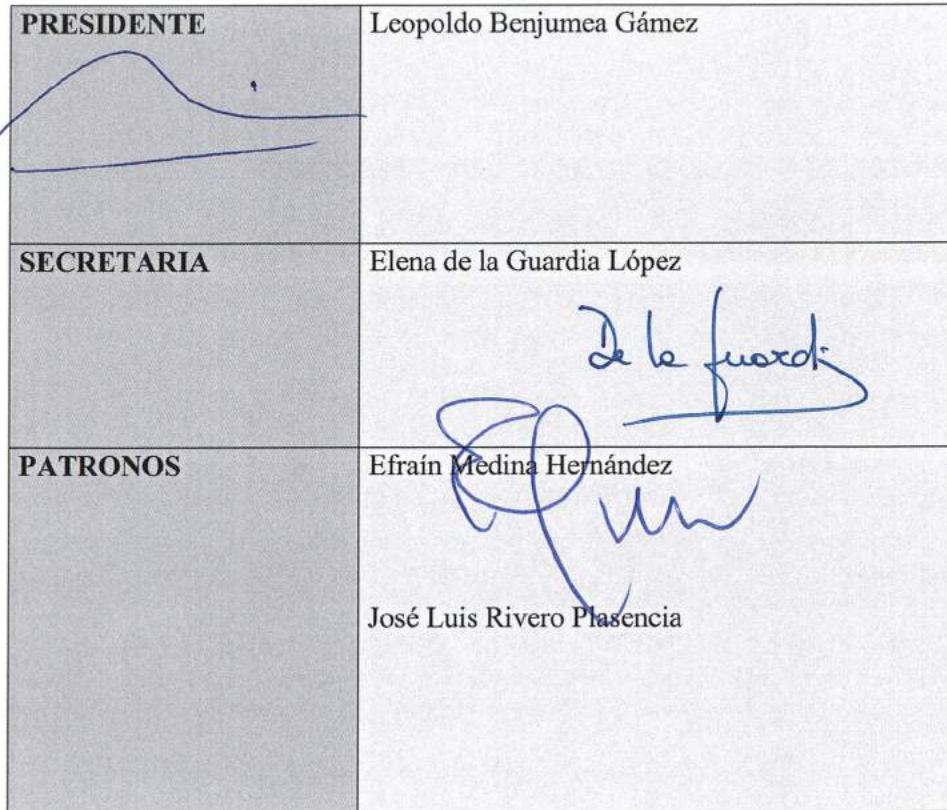 PRESIDENTE
Leopoldo Benjumea Gámez
SECRETARIA
Elena de la Guardia López
De la Guardi
PATRONOS
Efraín Medina Hernández
José Luis Rivero Plasencia